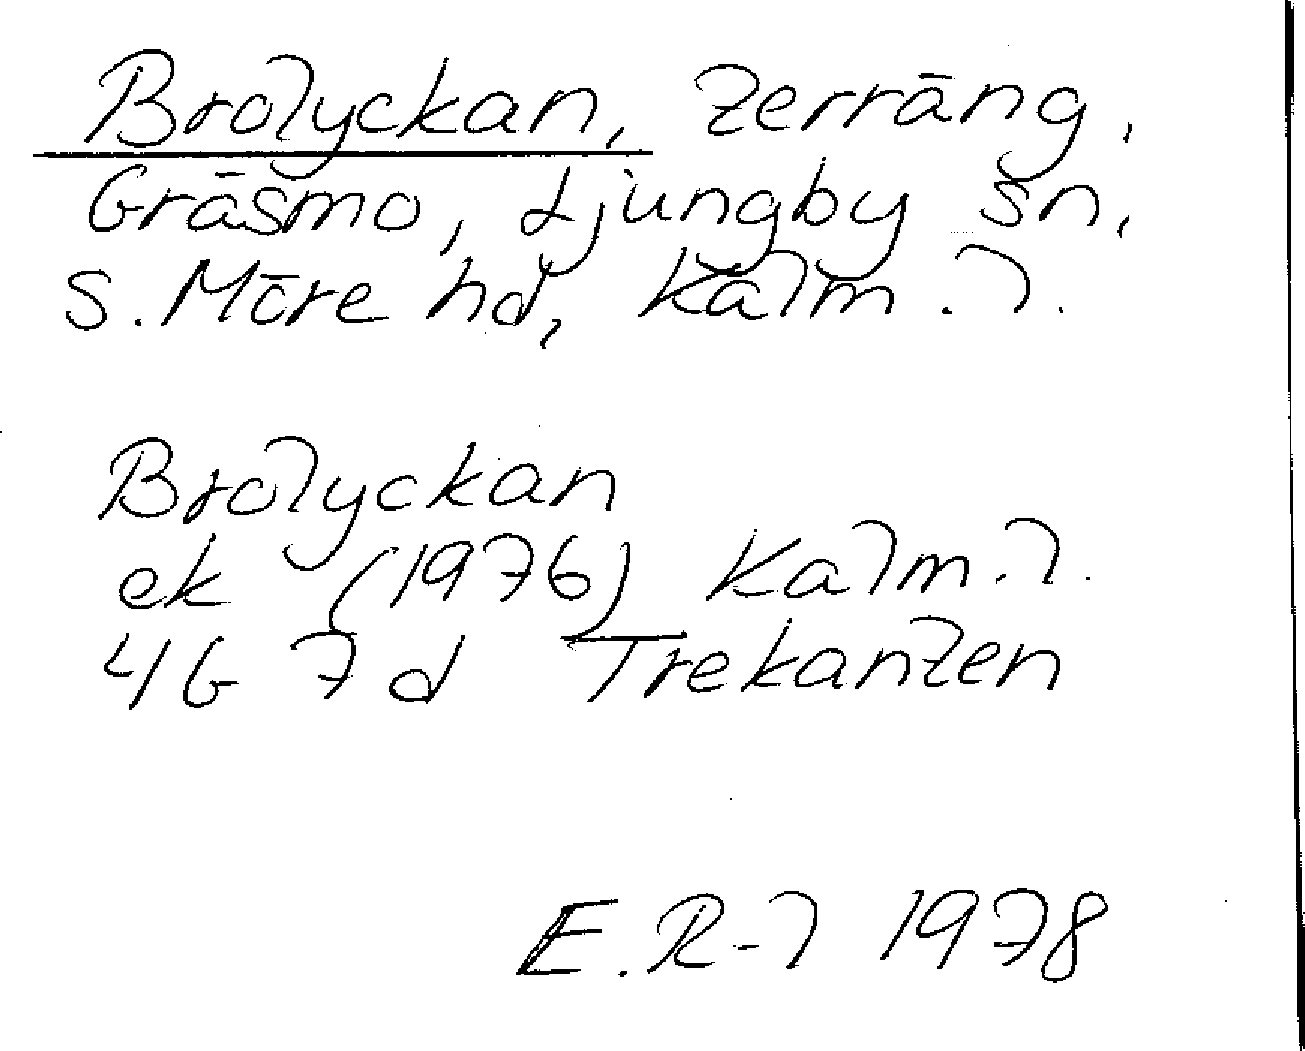 Brolyckan, terräng,
Gråsmo, Ljungby sn,
S. Möre hd, Kalm. l.
Brolyckan
ek (1976) Kalm. l.
4G 7d Trekanten
E.R-l 1978